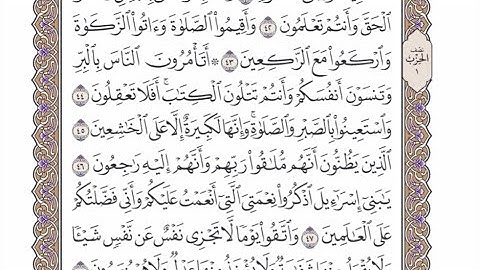 ٱلْحَقَّ وَأَنتُمْ تَعْلَمُونَ ٤٢ وَأَقِيمُوا۟ ٱلصَّلَوٰةَ وَءَاتُوا۟ ٱلزَّكَوٰةَ
وَٱرْكَعُوا۟ مَعَ ٱلرَّٰكِعِينَ ٤٣ ۞ أَتَأْمُرُونَ ٱلنَّاسَ بِٱلْبِرِّ
وَتَنسَوْنَ أَنفُسَكُمْ وَأَنتُمْ تَتْلُونَ ٱلْكِتَٰبَ ۚ أَفَلَا تَعْقِلُونَ ٤٤
وَٱسْتَعِينُوا۟ بِٱلصَّبْرِ وَٱلصَّلَوٰةِ ۚ وَإِنَّهَا لَكَبِيرَةٌ إِلَّا عَلَى ٱلْخَٰشِعِينَ ٤٥
ٱلَّذِينَ يَظُنُّونَ أَنَّهُم مُّلَٰقُوا۟ رَبِّهِمْ وَأَنَّهُمْ إِلَيْهِ رَٰجِعُونَ ٤٦
يَٰبَنِىٓ إِسْرَٰٓءِيلَ ٱذْكُرُوا۟ نِعْمَتِىَ ٱلَّتِىٓ أَنْعَمْتُ عَلَيْكُمْ وَأَنِّى فَضَّلْتُكُمْ
عَلَى ٱلْعَٰلَمِينَ ٤٧ وَٱتَّقُوا۟ يَوْمًا لَّا تَجْزِى نَفْسٌ عَن نَّفْسٍ شَيْـًٔا
وَلَا يُقْبَلُ مِنْهَا شَفَٰعَةٌ وَلَا يُؤْخَذُ مِنْهَا عَدْلٌ وَلَا هُمْ يُنصَرُونَ
نصف
الحزب
١